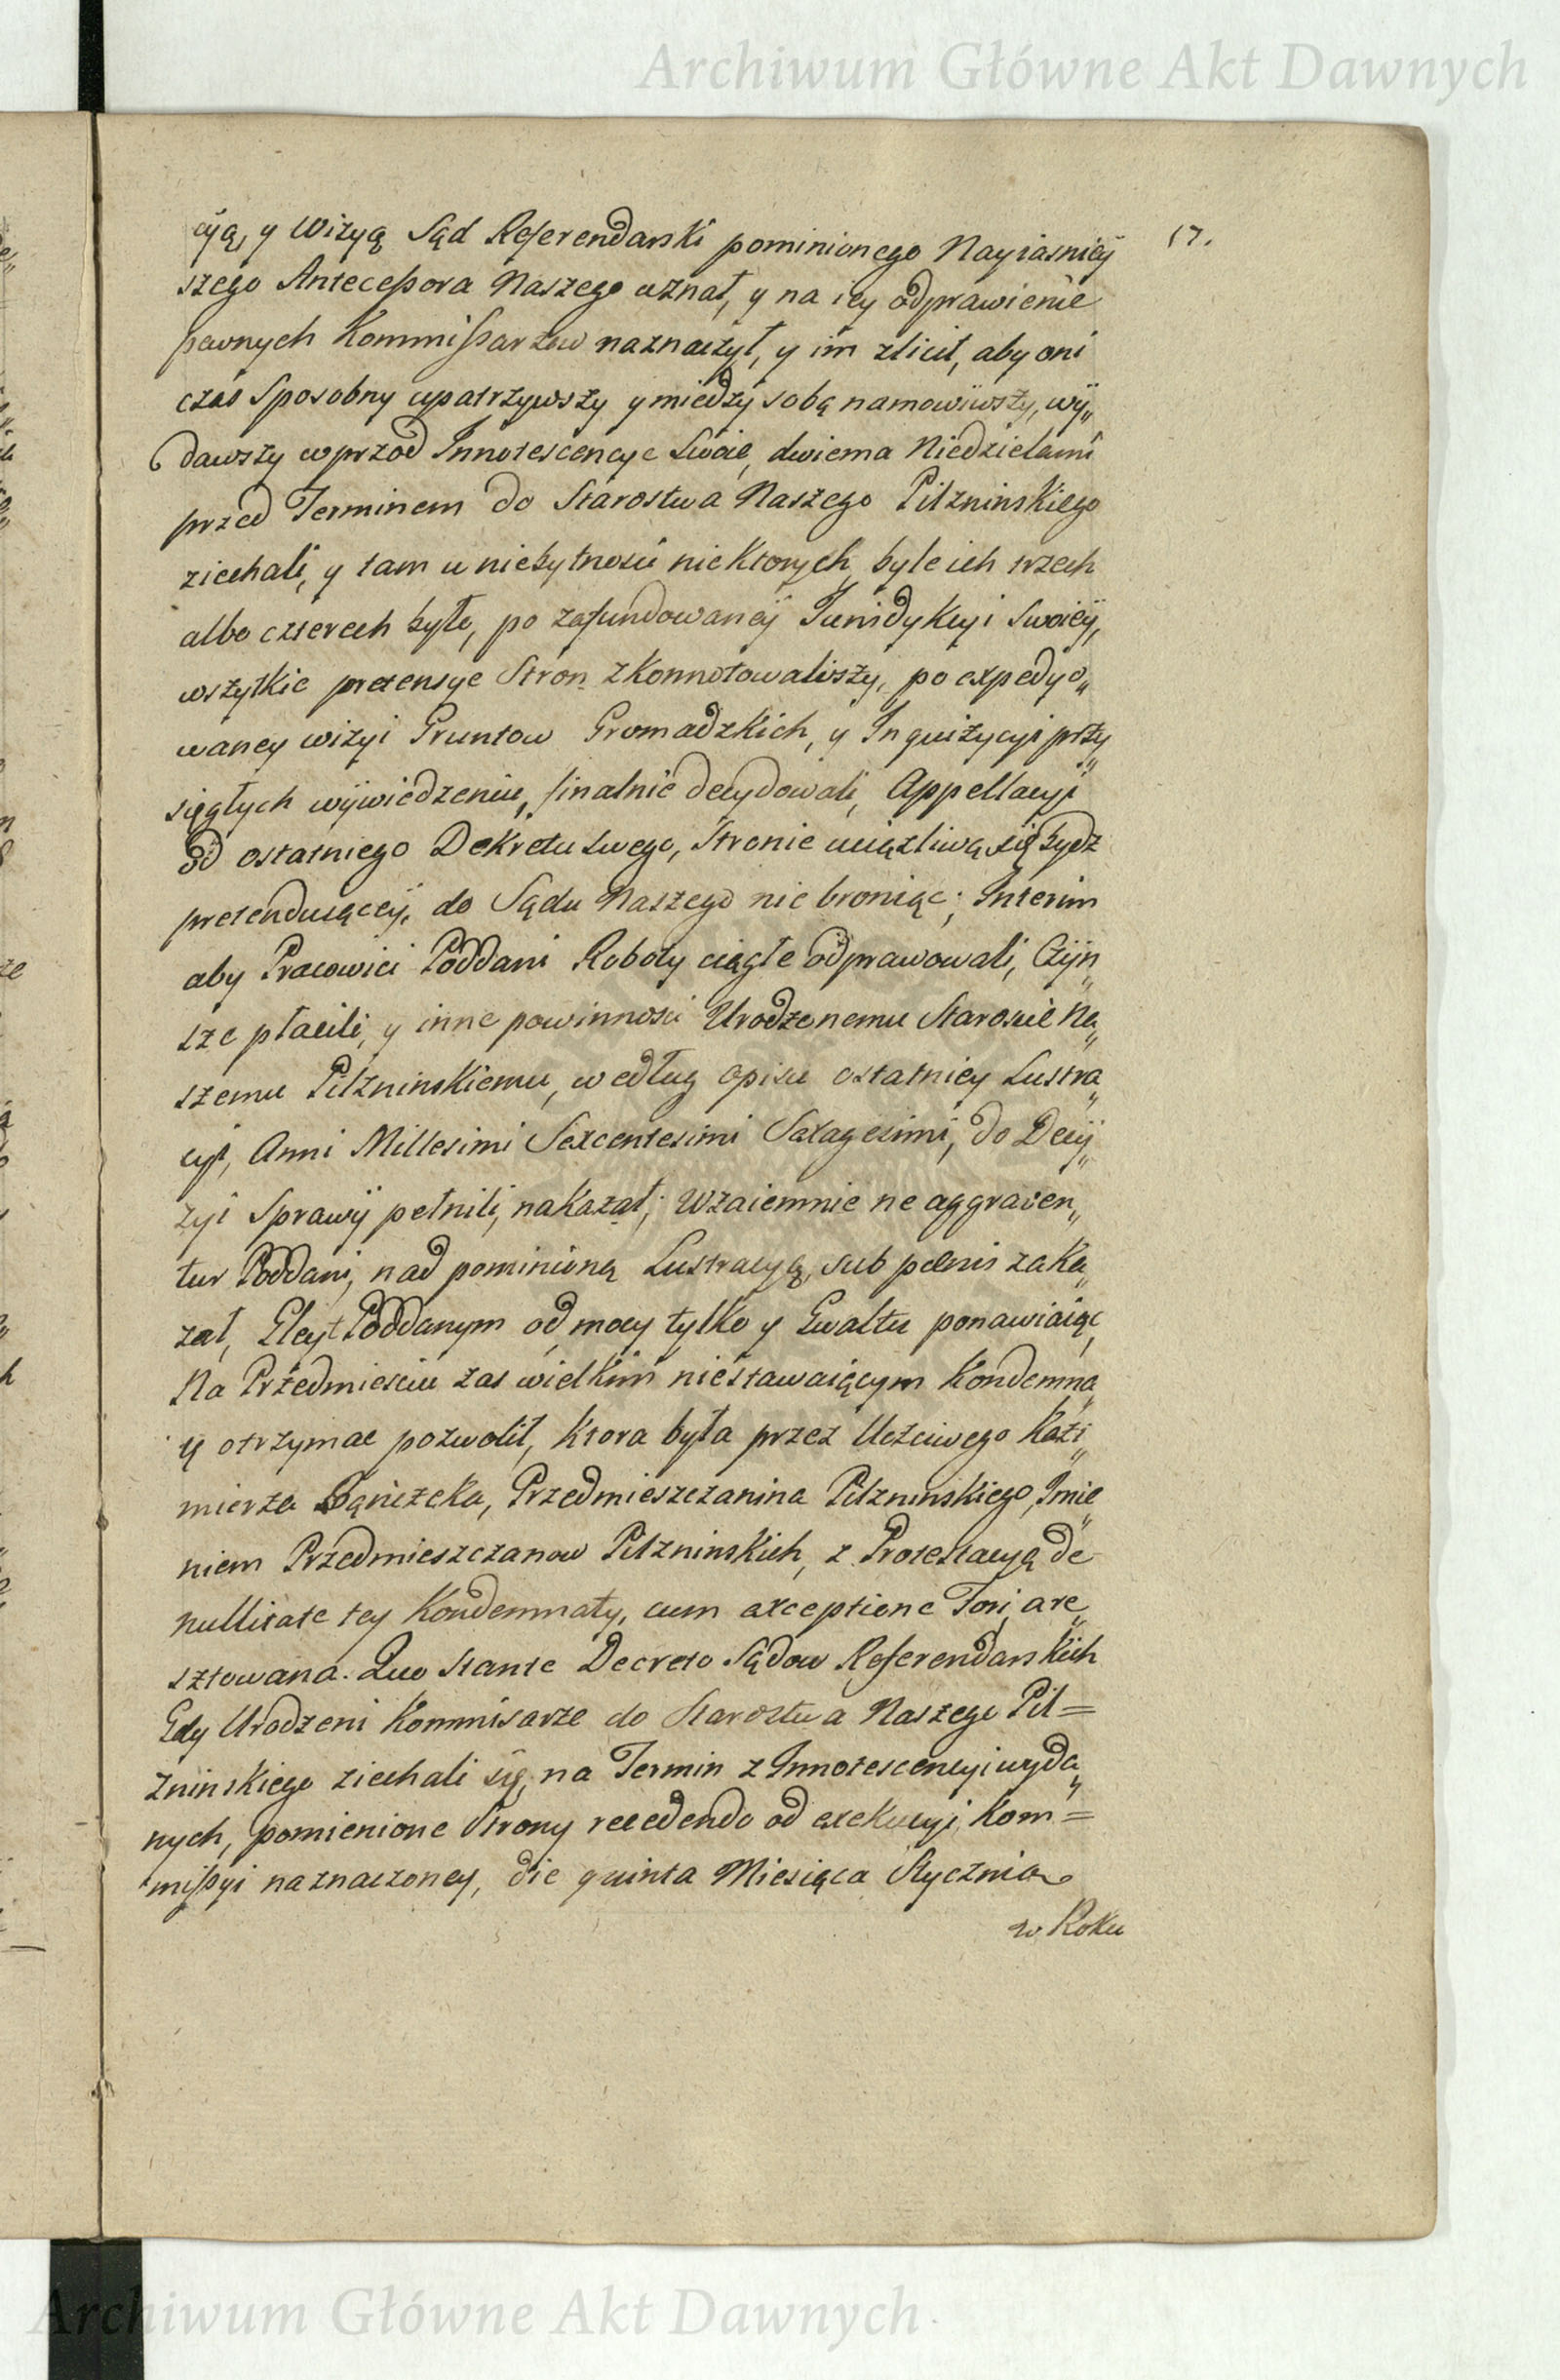 Archiwum Główne Akt Dawnych
17.
cyą, y Wizyą Sąd Referendarski pominionego Nayiasniey
szego Antecessora Naszego uznał, y na iey odprawienie
pewnych Kommissarzow naznaczył, y im zlicił, aby oni
czas Sposobny upatrzywszy y miedzy sobą namowiwszy, wy„
dawszy wprzod Innotescencye Swoie, dwiema Niedzielami
przed Terminem do Starostwa Naszego Pilzninskiego
ziechali, y tam w niebytnosci niektorych, byle ich trzech
albo czterech było, po zafundowaney Jurisdykcyi Swoiey,
wszytkie pretensye Stron zkonnotowaliszy, po expedyo„
waney wizyi Gruntow Gromadzkich, y Inquizycyi przy„
sięgłych wywiedzeniu, finalnie decydowali, Appellacyi
od ostatniego Dekretu Swego, Stronie uciążliwą się bydz
pretenduiącey, do Sądu Naszego nie broniąc; Interim
aby Pracowici Poddani Roboty ciągłe odprawowali, Czyn„
sze płacili, y inne powinnosci Urodzonemu Staroscie Na„
szemu Pilzninskiemu, według opisu ostatniey Lustra„
cyi, Anni Millesimi Sexcentesimi Sexagesimi, do Decy„
zyi Sprawy pełnili, nakazał; Wzaiemnie ne aggraven„
tur Poddani, nad pominioną Lustracyą, sub poenis zaka„
zał, Gleyt Poddanym od mocy tylko y Gwałtu ponawiaiąc,
Na Przedmiesciu zas wielkim niestawaiącym Kondemna„
tę otrzymac pozwolił, ktora była przez Uczciwego Kazi„
mierza Bąniczka, Przedmieszczanina Pilzninskiego, Imie„
niem Przedmieszczanow Pilzninskich, z Protestacyą de
nullitate tey Kondemnaty, cum exceptione Fori, are„
sztowana. Quo stante Decreto Sądow Referendarskich
Gdy Urodzeni Kommisarze do Starostwa Naszego Pil=
zninskiego ziechali się, na Termin z Innotescencyi wyda„
nych, pomienione Strony recedendo od exekucyi Kom=
missyi naznaczoney, die quinta Miesiąca Stycznia
w Roku
Archiwum Główne Akt Dawnych